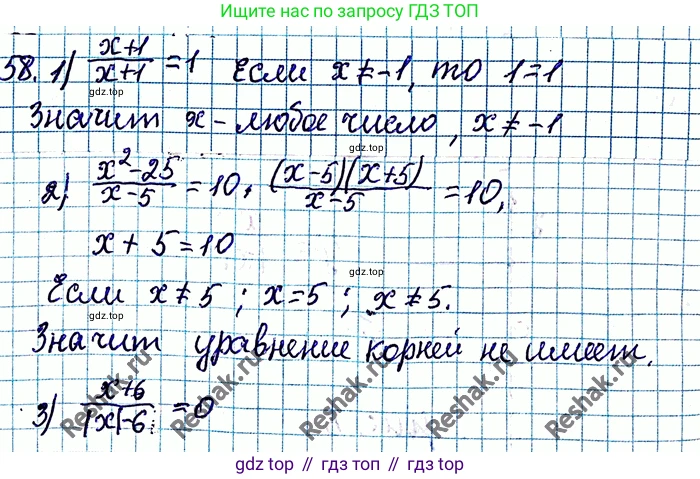 Ищите нас по запросу ГДЗ ТОП
58. 1) x+1/x+1 = 1 Если x ≠ -1, то 1 = 1
gdz.top
Значит x - любое число, x ≠ -1
2) x²-25/x-5 = 10, (x-5)(x+5)/x-5 = 10,
gdz.top
x + 5 = 10
gdz.top
Если x ≠ 5 ; x = 5 ; x ≠ 5.
Значит уравнение корней не имеет.
3) x+6/|x|-6 = 0
gdz.top
Reshak.ru
Reshak.ru
Reshak.ru
Reshak.ru
gdz top // гдз топ // gdz.top // гдз топ